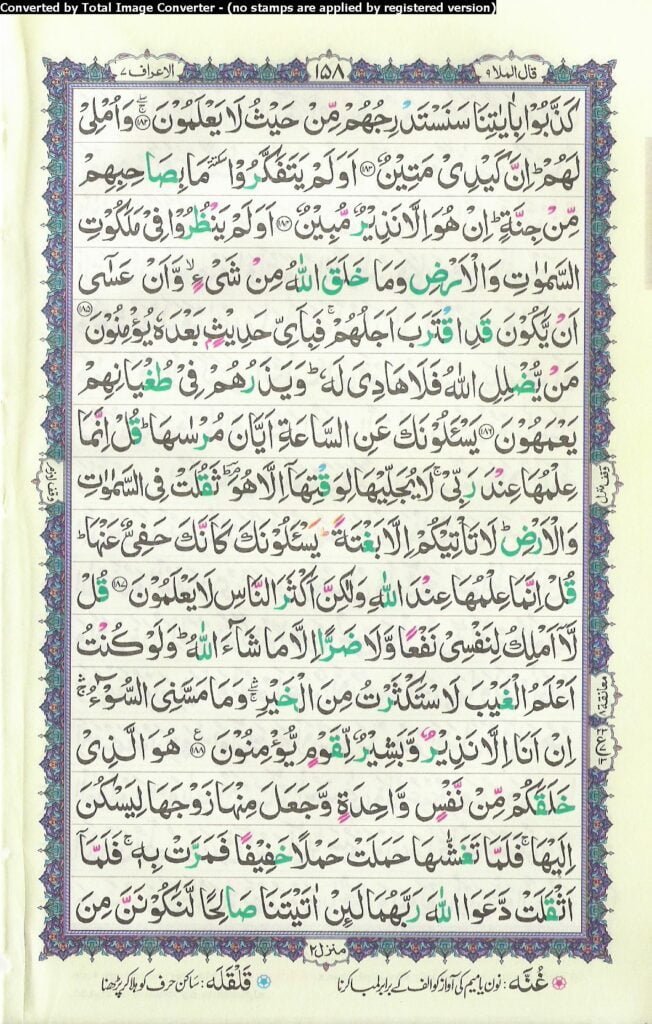 Converted by Total Image Converter - (no stamps are applied by registered version)
قال الملا ٩
١٥٨
الاعراف ٧
كَذَّبُوْا بِاٰيٰتِنَا سَنَسْتَدْرِجُهُمْ مِّنْ حَيْثُ لَا يَعْلَمُوْنَ ﴿١٨٢﴾ وَاُمْلِىْ
لَهُمْ ؕ اِنَّ كَيْدِىْ مَتِيْنٌ ﴿١٨٣﴾ اَوَلَمْ يَتَفَكَّرُوْا ٚ مَا بِصَاحِبِهِمْ
مِّنْ جِنَّةٍ ؕ اِنْ هُوَ اِلَّا نَذِيْرٌ مُّبِيْنٌ ﴿١٨٤﴾ اَوَلَمْ يَنْظُرُوْا فِىْ مَلَكُوْتِ
السَّمٰوٰتِ وَالْاَرْضِ وَمَا خَلَقَ اللّٰهُ مِنْ شَىْءٍ ۙ وَّاَنْ عَسٰٓى
اَنْ يَّكُوْنَ قَدِ اقْتَرَبَ اَجَلُهُمْ ۚ فَبِاَىِّ حَدِيْثٍۭ بَعْدَهٗ يُؤْمِنُوْنَ ﴿١٨٥﴾
مَنْ يُّضْلِلِ اللّٰهُ فَلَا هَادِىَ لَهٗ ؕ وَيَذَرُهُمْ فِىْ طُغْيَانِهِمْ
يَعْمَهُوْنَ ﴿١٨٦﴾ يَسْئَلُوْنَكَ عَنِ السَّاعَةِ اَيَّانَ مُرْسٰىهَا ؕ قُلْ اِنَّمَا
عِلْمُهَا عِنْدَ رَبِّىْ ۚ لَا يُجَلِّيْهَا لِوَقْتِهَآ اِلَّا هُوَ ؔؕ ثَقُلَتْ فِى السَّمٰوٰتِ
وَالْاَرْضِ ؕ لَا تَاْتِيْكُمْ اِلَّا بَغْتَةً ؕ يَسْئَلُوْنَكَ كَاَنَّكَ حَفِىٌّ عَنْهَا ؕ
قُلْ اِنَّمَا عِلْمُهَا عِنْدَ اللّٰهِ وَلٰكِنَّ اَكْثَرَ النَّاسِ لَا يَعْلَمُوْنَ ﴿١٨٧﴾ قُلْ
لَّاۤ اَمْلِكُ لِنَفْسِىْ نَفْعًا وَّلَا ضَرًّا اِلَّا مَا شَآءَ اللّٰهُ ؕ وَلَوْ كُنْتُ
اَعْلَمُ الْغَيْبَ لَاسْتَكْثَرْتُ مِنَ الْخَيْرِ ۛۚ وَمَا مَسَّنِىَ السُّوْٓءُ ۛۚ
اِنْ اَنَا اِلَّا نَذِيْرٌ وَّبَشِيْرٌ لِّقَوْمٍ يُّؤْمِنُوْنَ ﴿١٨٨﴾ ع هُوَ الَّذِىْ
خَلَقَكُمْ مِّنْ نَّفْسٍ وَّاحِدَةٍ وَّجَعَلَ مِنْهَا زَوْجَهَا لِيَسْكُنَ
اِلَيْهَا ۚ فَلَمَّا تَغَشّٰىهَا حَمَلَتْ حَمْلًا خَفِيْفًا فَمَرَّتْ بِهٖ ۚ فَلَمَّاۤ
اَثْقَلَتْ دَّعَوَا اللّٰهَ رَبَّهُمَا لَئِنْ اٰتَيْتَنَا صَالِحًا لَّنَكُوْنَنَّ مِنَ
منزل ٢
غُنَّه : نون یا میم کی آواز کو الف کے برابر لمبا کرنا
قَلْقَلَه : ساکن حرف کو ہلا کر پڑھنا